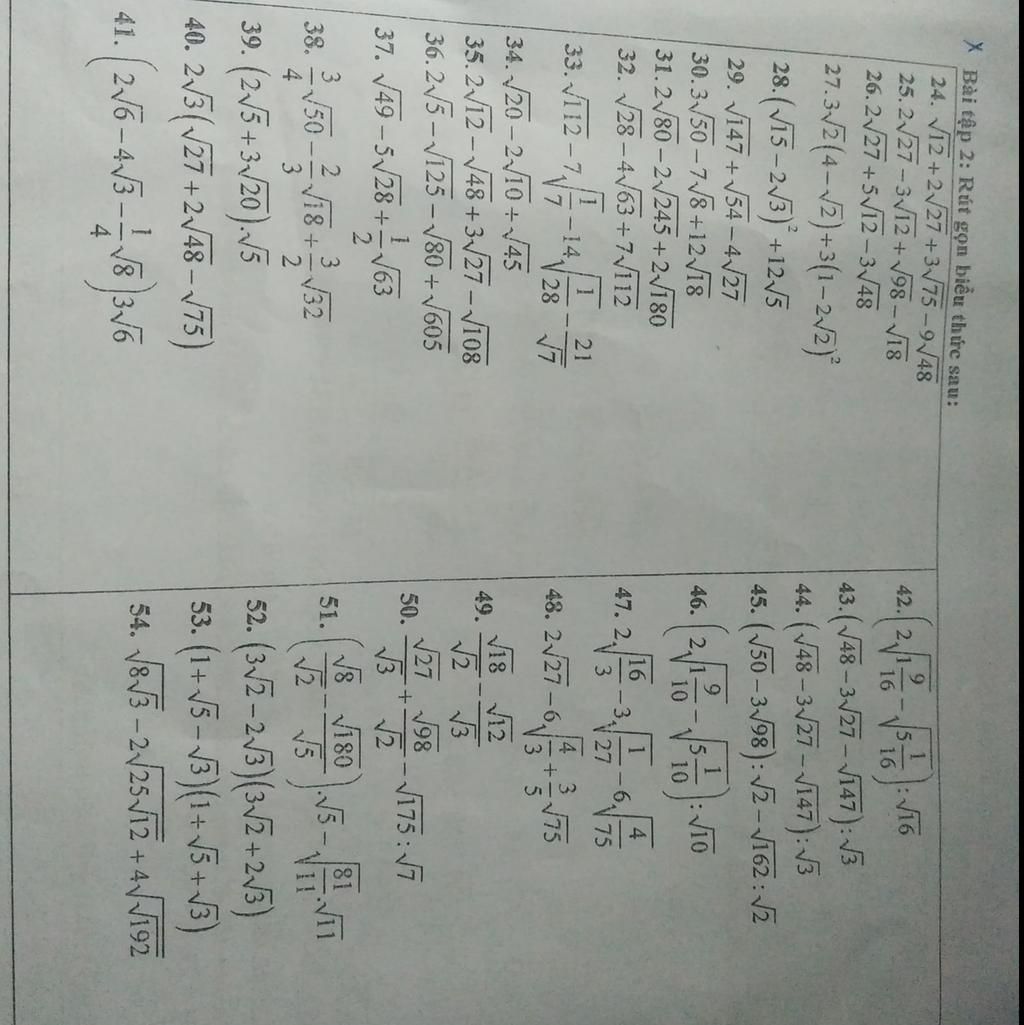 X Bài tập 2: Rút gọn biểu thức sau:
24. √12 + 2√27 + 3√75 − 9√48
25. 2√27 − 3√12 + √98 − √18
26. 2√27 + 5√12 − 3√48
27. 3√2(4 − √2) + 3(1 − 2√2)²
28. (√15 − 2√3)² + 12√5
29. √147 + √54 − 4√27
30. 3√50 − 7√8 + 12√18
31. 2√80 − 2√245 + 2√180
32. √28 − 4√63 + 7√112
33. √112 − 7√(1/7) − 14√(1/28) − 21/√7
34. √20 − 2√10 + √45
35. 2√12 − √48 + 3√27 − √108
36. 2√5 − √125 − √80 + √605
37. √49 − 5√28 + 1/2 √63
38. 3/4 √50 − 2/3 √18 + 3/2 √32
39. (2√5 + 3√20).√5
40. 2√3(√27 + 2√48 − √75)
41. (2√6 − 4√3 − 1/4 √8)3√6
42. (2√(1 9/16) − √(5 1/16)) : √16
43. (√48 − 3√27 − √147) : √3
44. (√48 − 3√27 − √147) : √3
45. (√50 − 3√98) : √2 − √162 : √2
46. (2√(1 9/10) − √(5 1/10)) : √10
47. 2√(16/3) − 3√(1/27) − 6√(4/75)
48. 2√27 − 6√(4/3) + 3/5 √75
49. √18/√2 − √12/√3
50. √27/√3 + √98/√2 − √175 : √7
51. (√8/√2 − √180/√5).√5 − √(81/11).√11
52. (3√2 − 2√3)(3√2 + 2√3)
53. (1 + √5 − √3)(1 + √5 + √3)
54. √(8√3) − 2√(25√12) + 4√(√192)